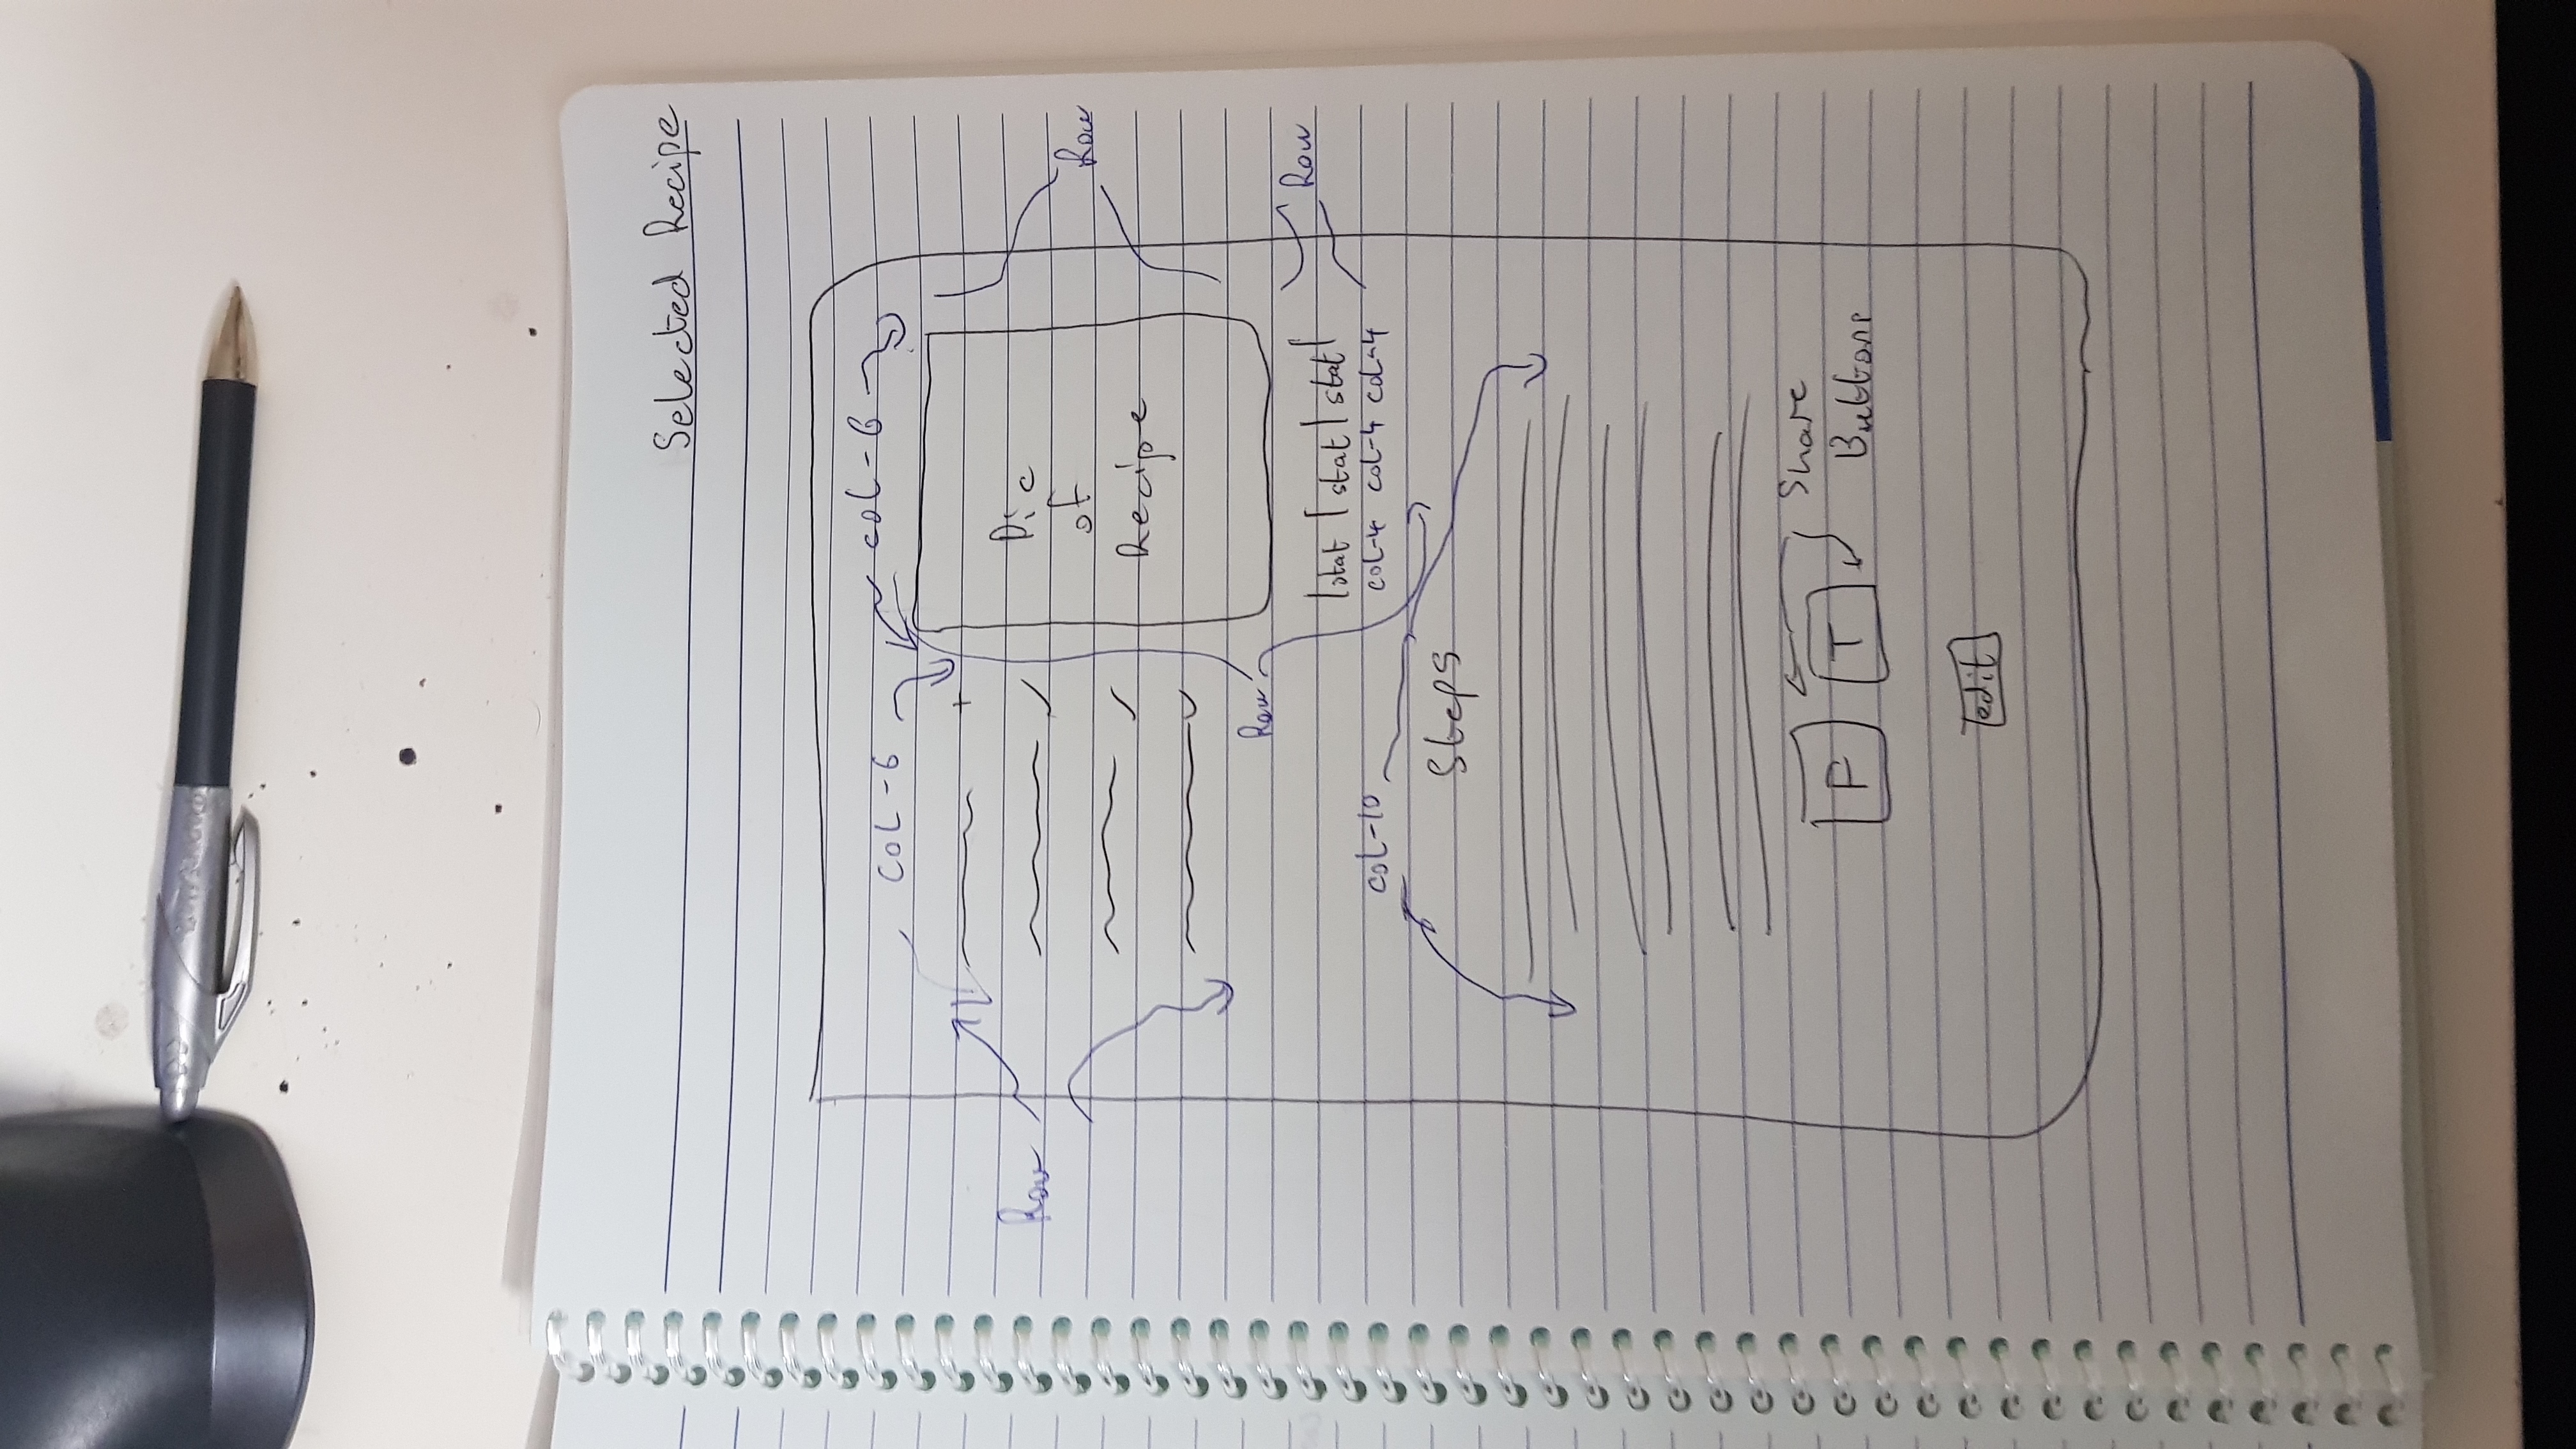 Selected Recipe
Col-6
col-6
+
Row
Pic
of
Recipe
Row
Row
|stat | stat | stat|
Row
col-4 col-4 col-4
col-10
Steps
F T
Share
Buttons
edit